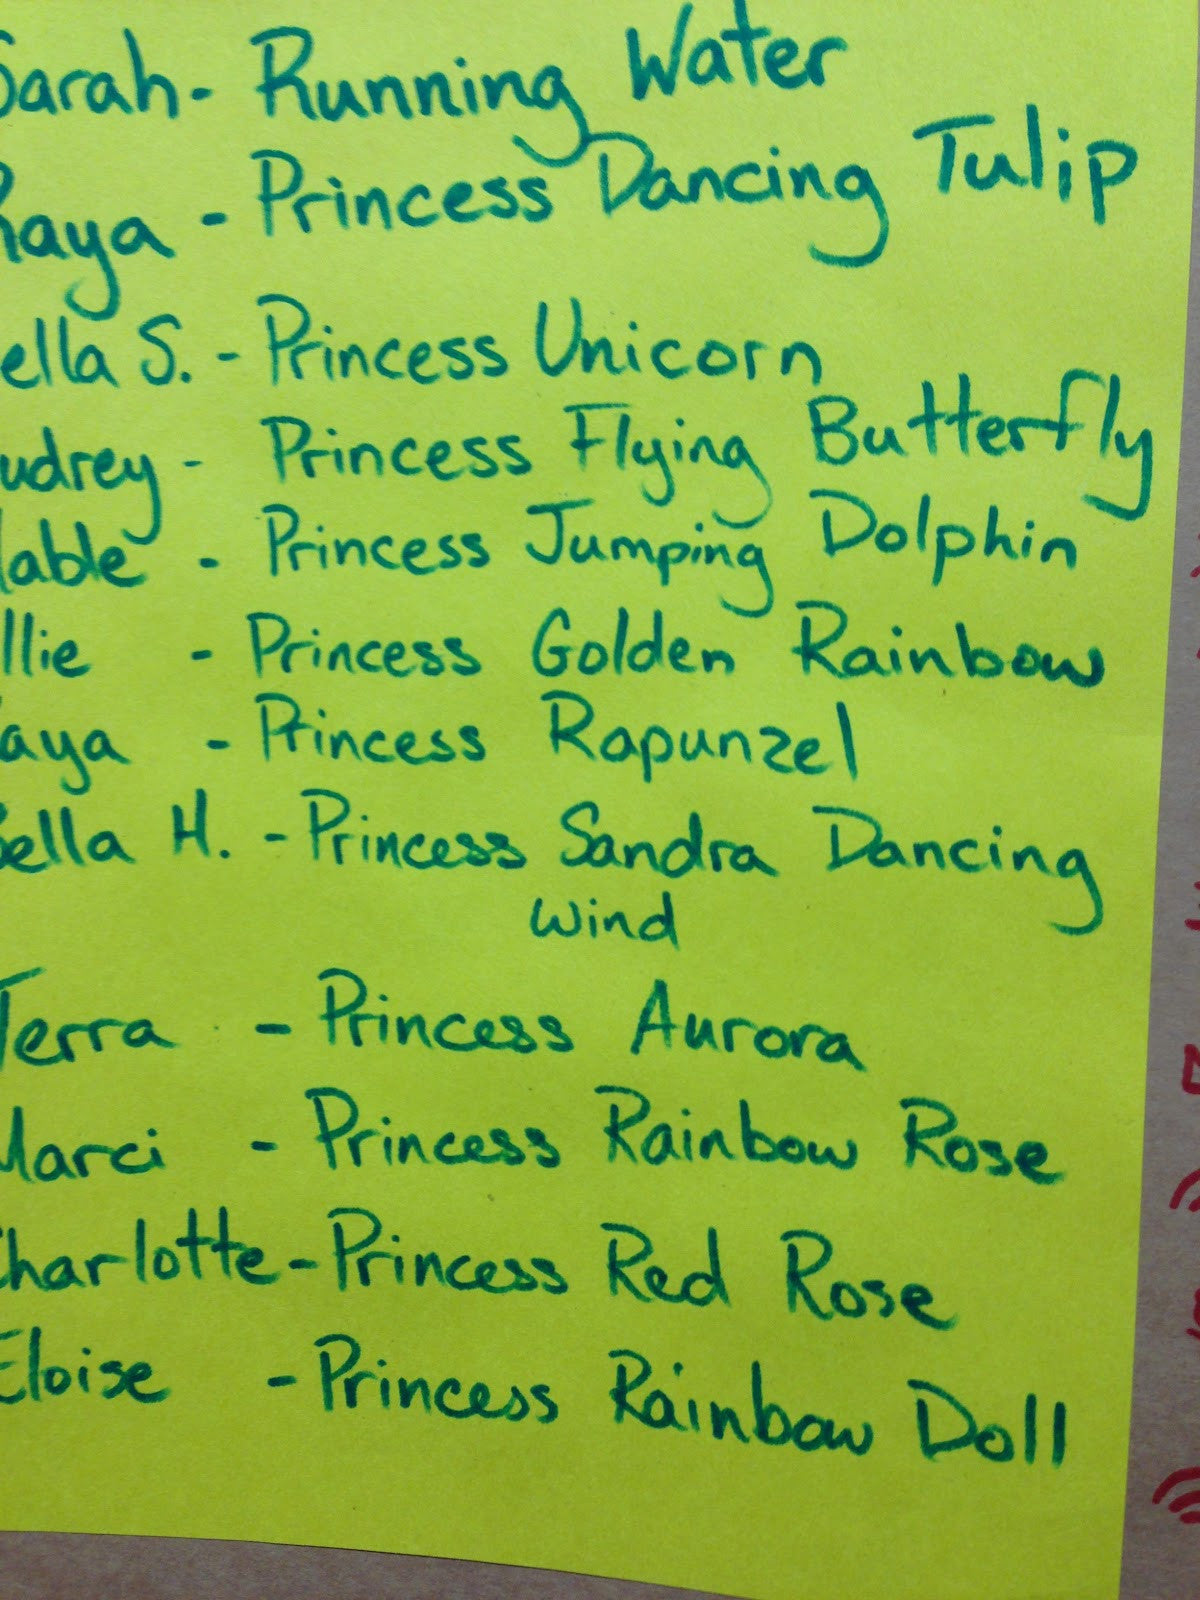 Sarah - Running Water
Raya - Princess Dancing Tulip
ella S. - Princess Unicorn
udrey - Princess Flying Butterfly
able - Princess Jumping Dolphin
llie - Princess Golden Rainbow
aya - Princess Rapunzel
Bella H. - Princess Sandra Dancing
Wind
Terra - Princess Aurora
Marci - Princess Rainbow Rose
Charlotte - Princess Red Rose
Eloise - Princess Rainbow Doll